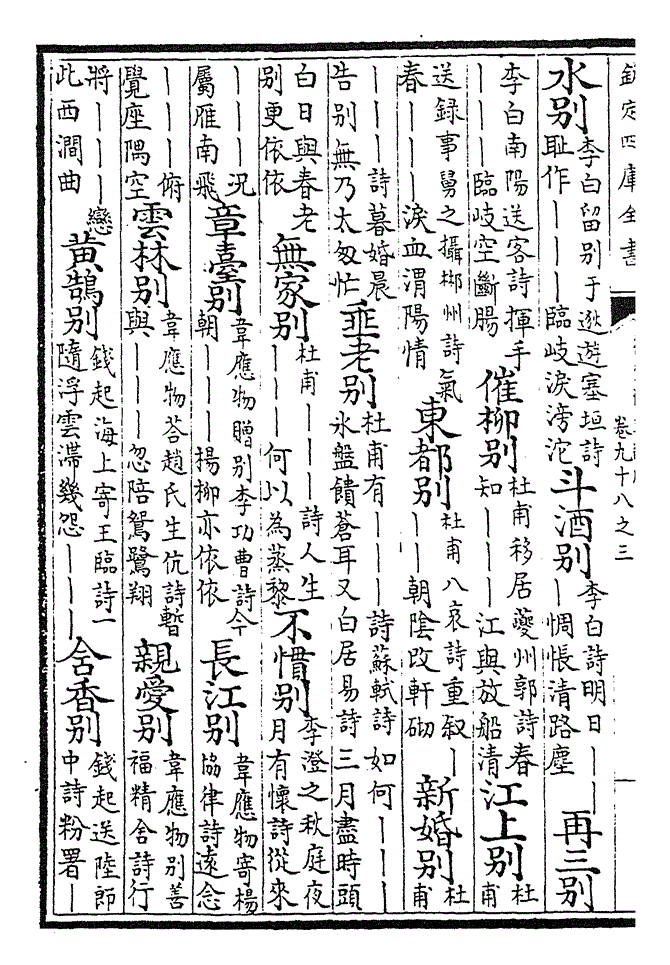 欽定四庫全書
卷九十八之三
水别
李白留别于逖遊塞垣詩
恥作｜｜｜臨岐淚滂沱
斗酒别
李白詩明日｜｜
｜惆悵清路塵
再三别
李白南陽送客詩揮手
｜｜｜臨岐空斷腸
催柳别
杜甫移居夔州郭詩春
知｜｜｜江與放船清
江上别
杜
甫
送録事舅之攝郴州詩氣
春｜｜｜淚血渭陽情
東都别
杜甫八哀詩重叙｜
｜｜朝陰改軒砌
新婚别
杜
甫
｜｜｜詩暮婚晨
告别無乃太匆忙
垂老别
杜甫有｜｜｜詩蘇軾詩如何｜｜｜
氷盤饋蒼耳又白居易詩三月盡時頭
白日與春老
别更依依
無家别
杜甫｜｜｜詩人生
｜｜｜何以為蒸黎
不惜别
李澄之秋庭夜
月有懷詩從來
｜｜｜况
屬雁南飛
章臺别
韋應物贈别李功曹詩今
朝｜｜｜楊柳亦依依
長江别
韋應物寄楊
協律詩遠念
｜｜｜俯
覺座隅空
雲林别
韋應物荅趙氏生伉詩暫
與｜｜｜忽陪鴛鷺翔
親愛别
韋應物别善
福精舍詩行
將｜｜｜戀
此西澗曲
黄鵠别
錢起海上寄王臨詩一
隨浮雲滯幾怨｜｜｜
含香别
錢起送陸郎
中詩粉署｜